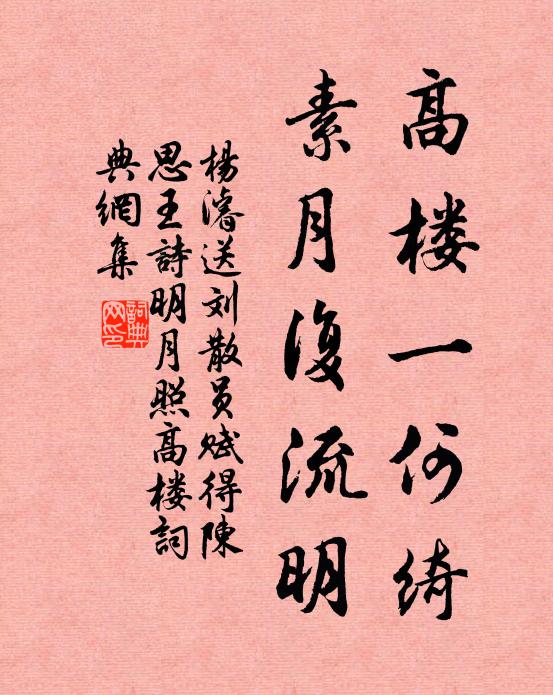 高楼一何绮
素月复流明
楊濬送刘散员赋得陳
思王詩明月照高楼詞
典網集
詞典网印